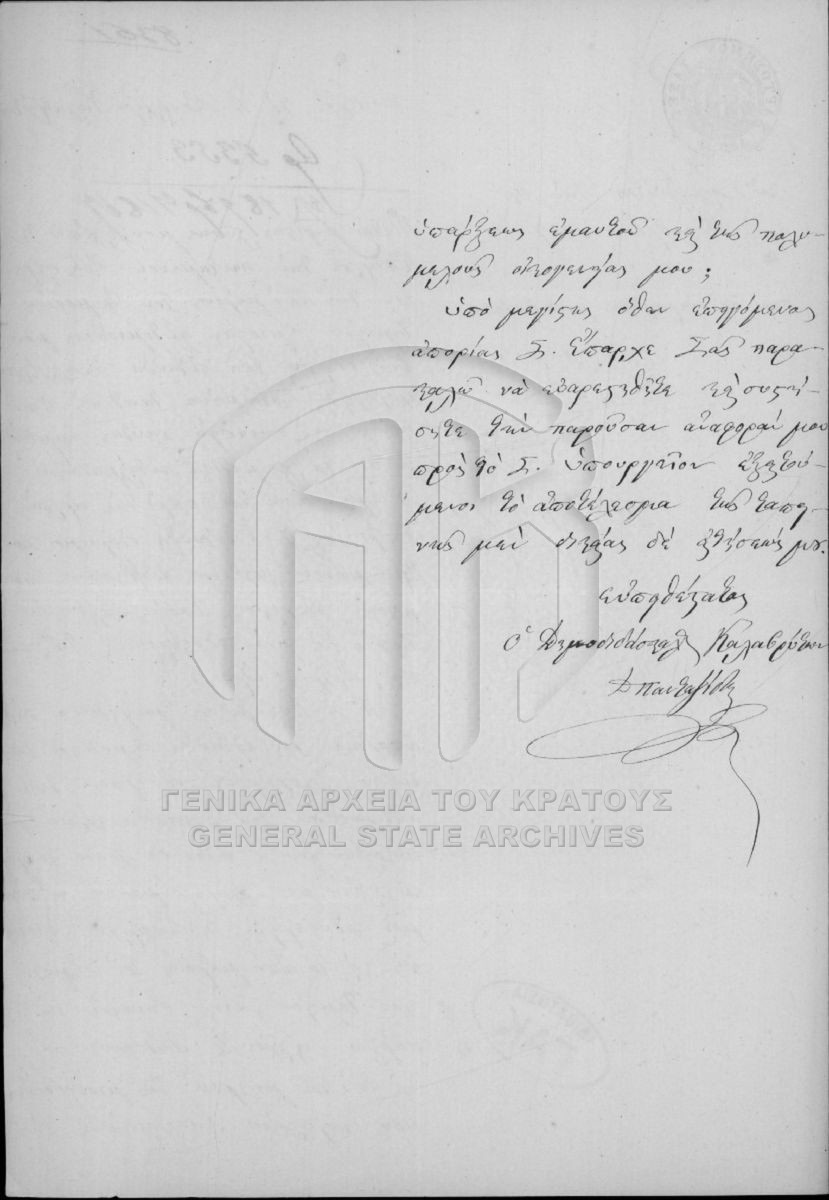 ὑπάρξεως ἐμαυτοῦ καὶ τῆς πολυ-
μελοῦς οἰκογενείας μου;
ὑπὸ μεγίστης ὅθεν ἐπειγόμενος
ἀπορίας Σ. Ἔπαρχε Σᾶς παρα-
καλῶ νὰ εὐαρεστηθῆτε καὶ συστή-
σητε τὴν παροῦσαν ἀναφοράν μου
πρὸς τὸ Σ. ὑπουργεῖον
μενοι τὸ ἀποτέλεσμα τῆς ταπει-
νῆς μὲν δικαίας δὲ αἰτήσεώς μου.
εὐπειθέστατος
ὁ Δημοδιδάσκαλος Καλαβρύτων
ΓΕΝΙΚΑ ΑΡΧΕΙΑ ΤΟΥ ΚΡΑΤΟΥΣ
GENERAL STATE ARCHIVES